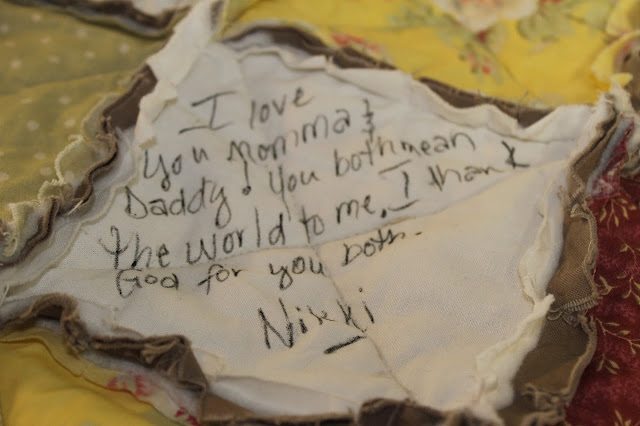 I love
You Momma &
Daddy! You both mean
the world to me. I thank
God for you both.
Nikki